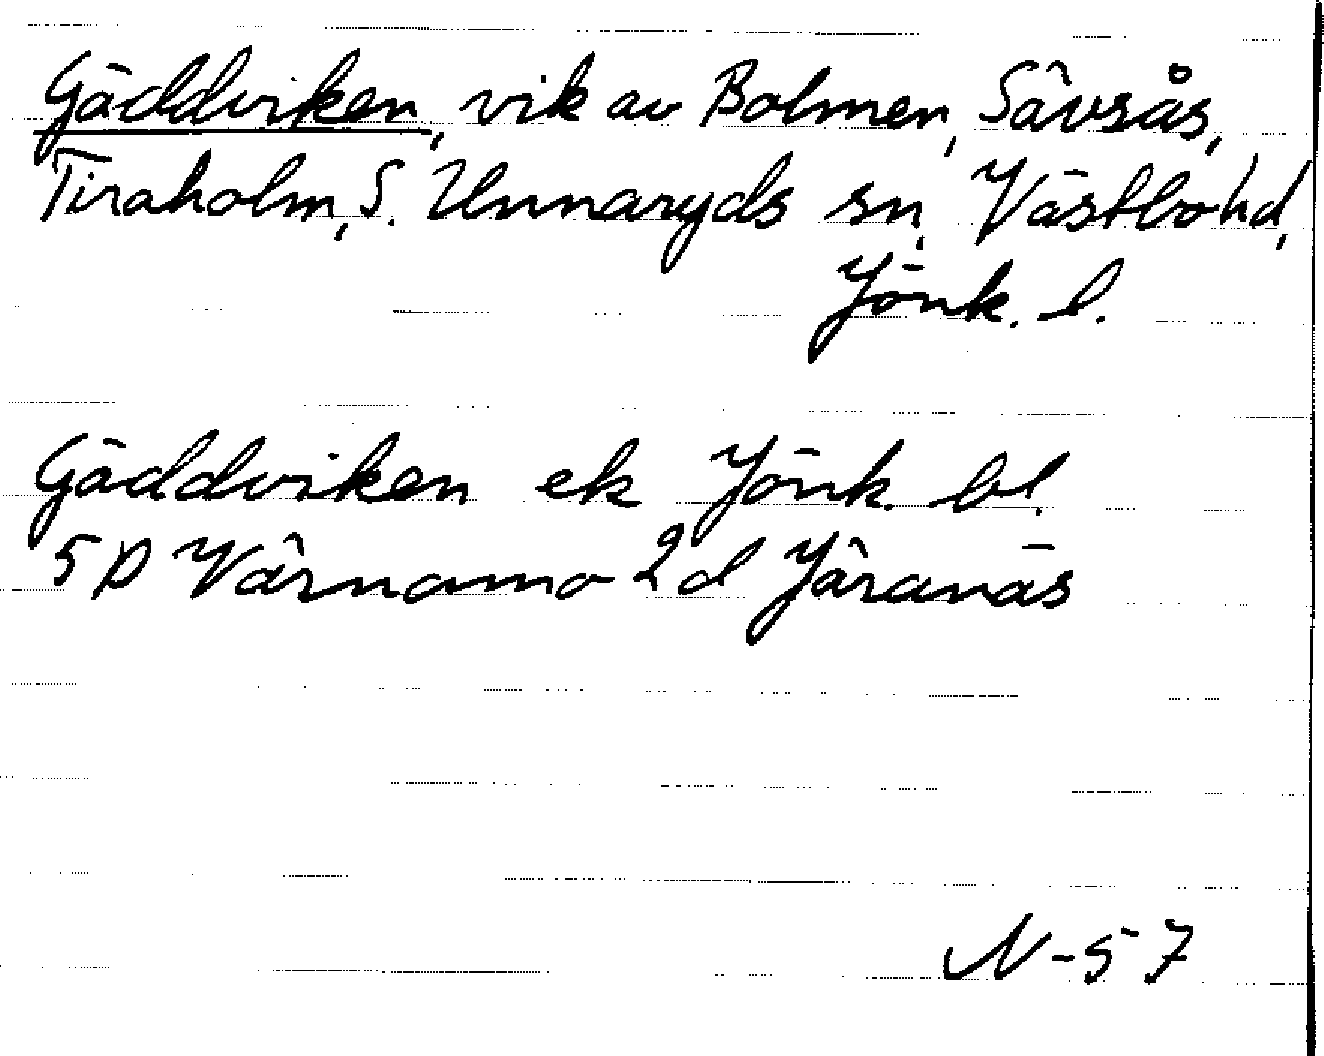 Gäddviken, vik av Bolmen, Sävsås,
Tiraholm, S. Unnaryds sn, Västbo hd,
Jönk. l.
Gäddviken ek Jönk. bl.
5D Värnamo 2d Järanäs
N-57